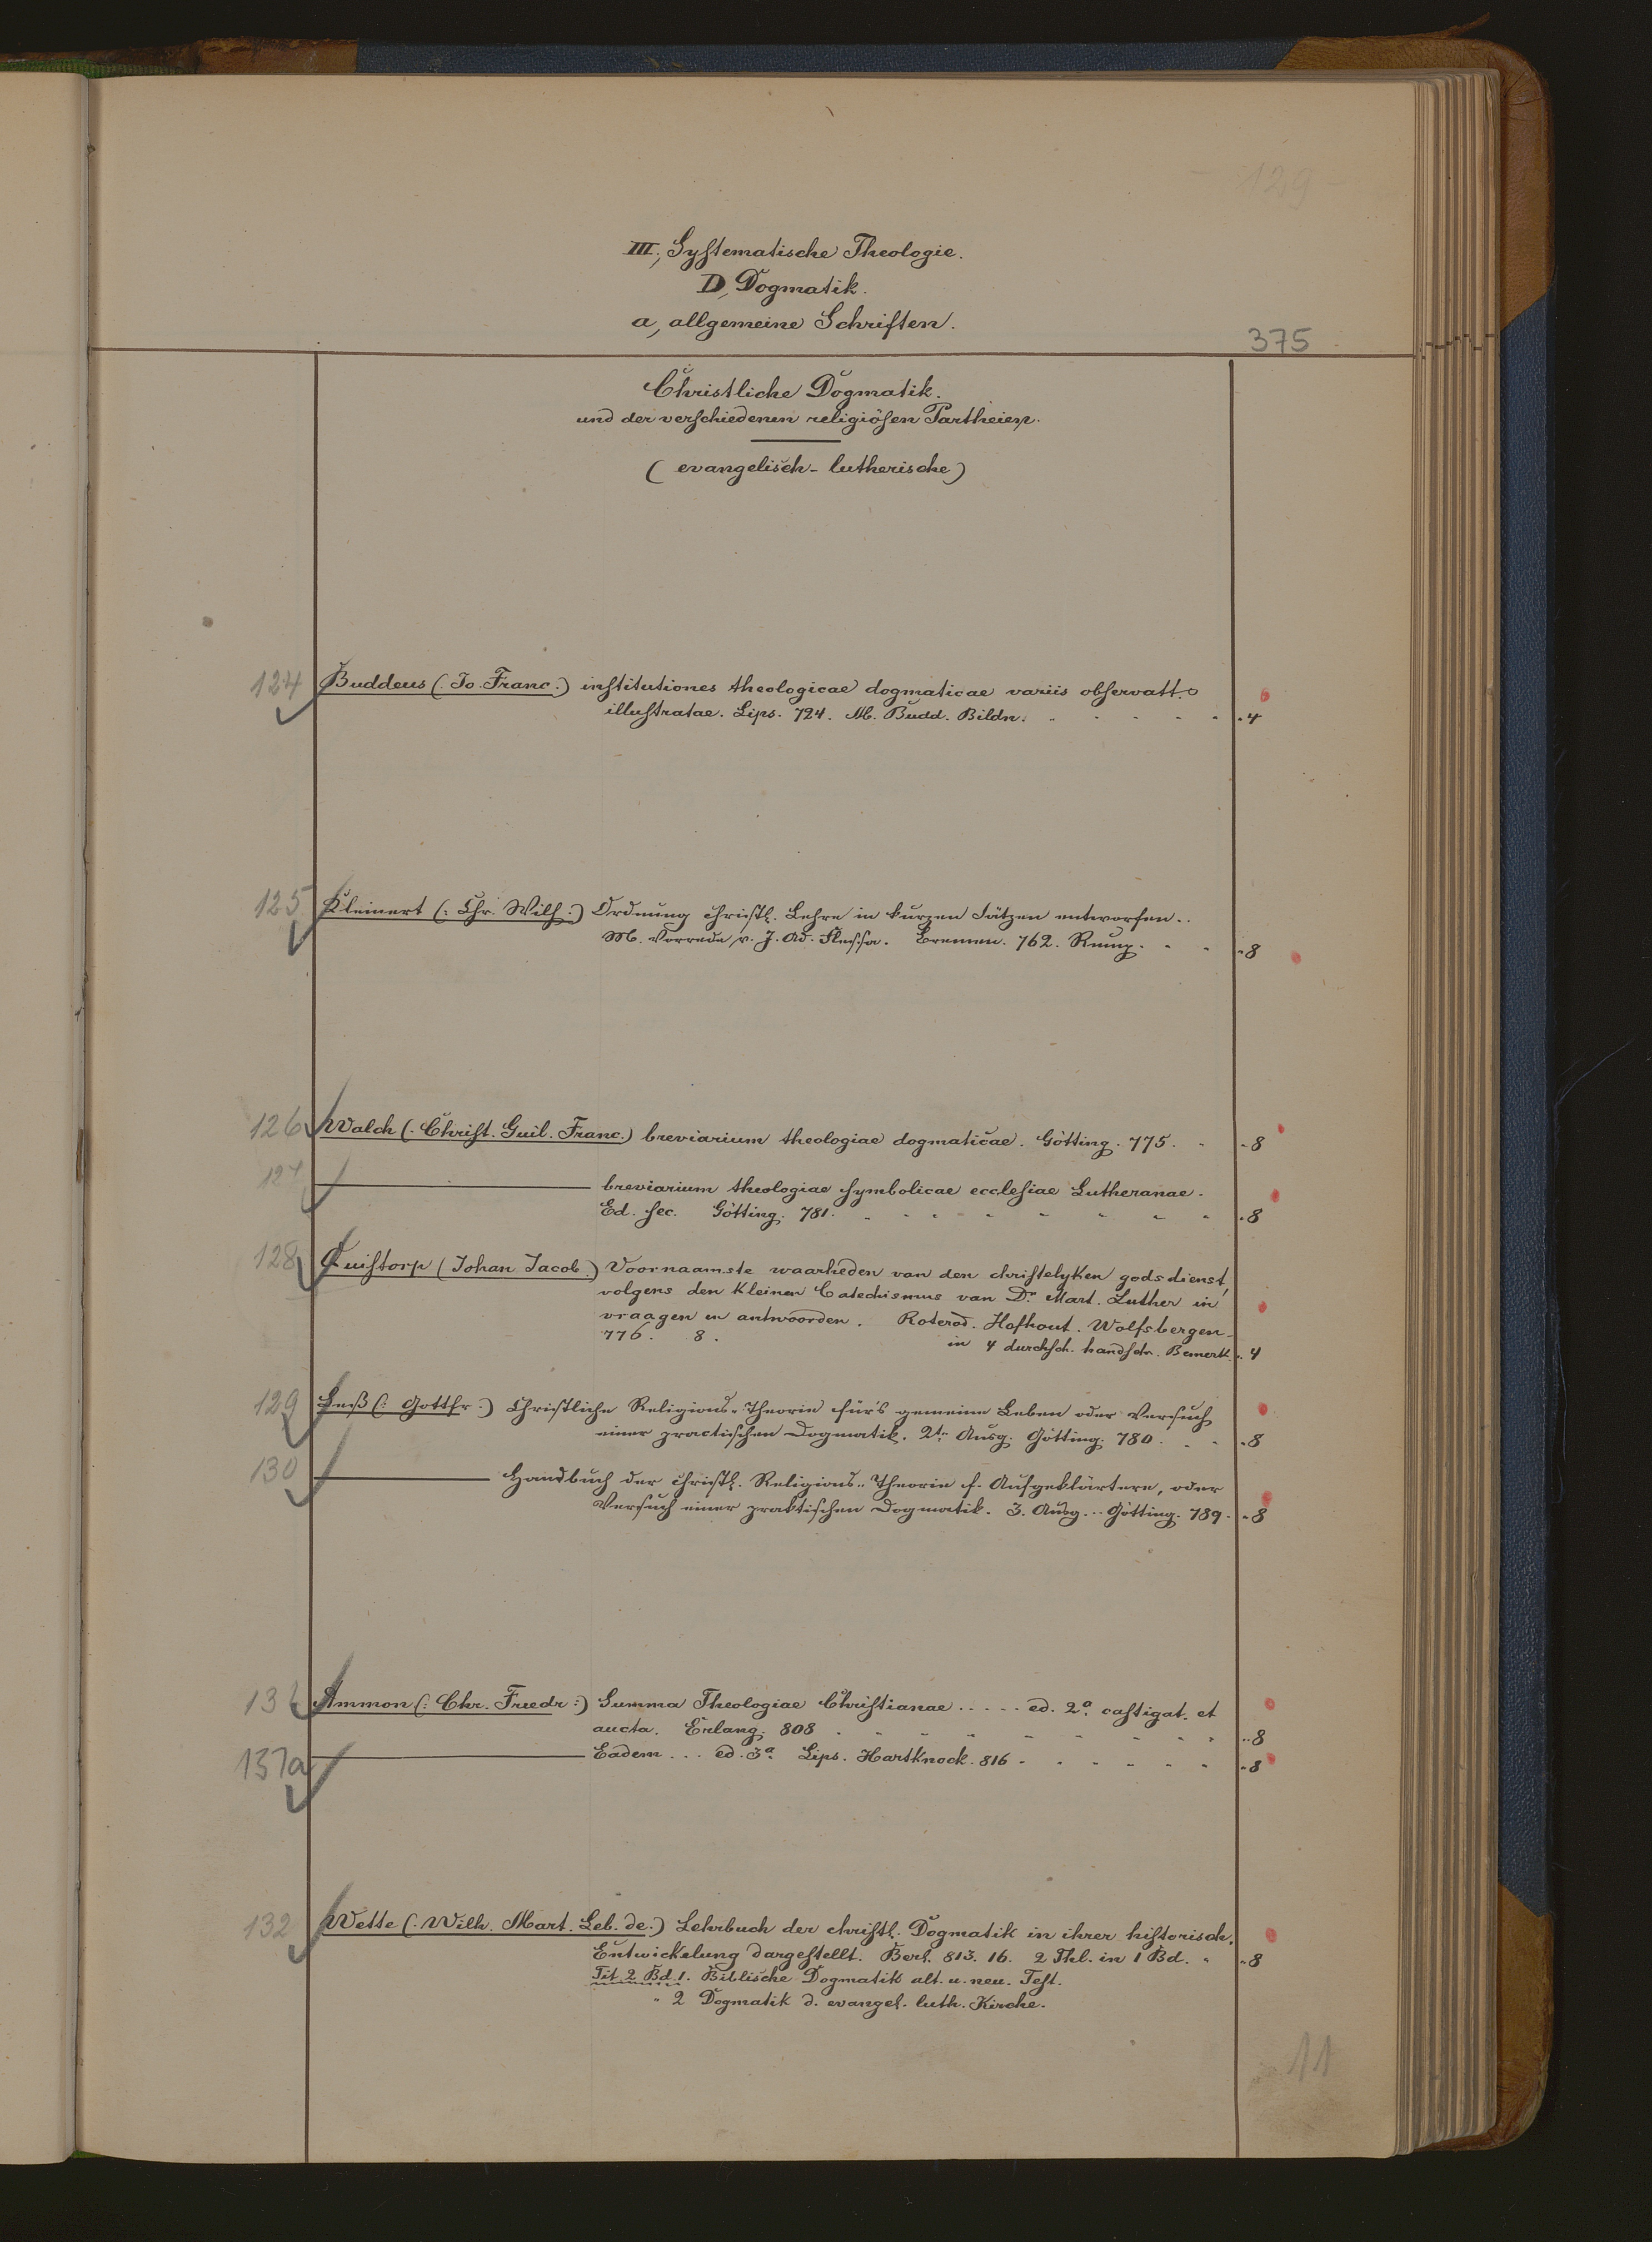 - 129 -
III, Systematische Theologie.
D, Dogmatik.
a, allgemeine Schriften.
375
Christliche Dogmatik.
und der verschiedenen religiösen Partheien.
(evangelisch-lutherische)
124 Buddeus (: Jo. Franc.:) institutiones theologicae dogmaticae variis observatt.
illustratae. Lips. 724. M. Budd. Bildn. . . . . . 4
125 Kleinert (: Chr. Wilh:) Ordnung christl. Lehre in kurzen Sätzen entworfen..
M. Vorrede v. J. Ad. Flessa. Bremen. 762. Rump. . . 8
126 Walch (: Christ. Guil. Franc.) breviarium theologiae dogmaticae. Götting. 775. . 8
127 ——— breviarium theologiae symbolicae ecclesiae Lutheranae.
Ed. sec. Götting. 781. . . . . . . . 8
128 Quistorp (Johan Jacob.) Voornaamste waarheden van den christelyken godsdienst,
volgens den kleinen Catechismus van Dr. Mart. Luther in
vraagen en antwoorden. Roterod. Hofhout. Wolfsbergen
776. 8. in 4 durchsch. handschr. Bemerk. . 4
129 Leß (: Gottfr:) Christliche Religions-Theorie für's gemeine Leben oder Versuch
einer practischen Dogmatik. 2te Ausg. Götting. 780. . . 8
130 ——— Handbuch der christl. Religions-Theorie f. Aufgeklärtere, oder
Versuch einer praktischen Dogmatik. 3. Ausg... Götting. 789. . 8
131 Ammon (: Chr. Friedr:) Summa Theologiae Christianae ..... ed. 2a. castigat. et
aucta. Erlang. 808 . . . . . . . . 8
131a ——— Eadem ... ed. 3a. Lips. Hartknock. 816 . . . . . . 8
132 Wette (: Wilh. Mart. Leb. de:) Lehrbuch der christl. Dogmatik in ihrer historisch.
Entwickelung dargestellt. Berl. 813. 16. 2 Thl. in 1 Bd. . 8
Tit. 2 Bd. 1. Biblische Dogmatik alt. u. neu. Test.
" 2 Dogmatik d. evangel. luth. Kirche.
11